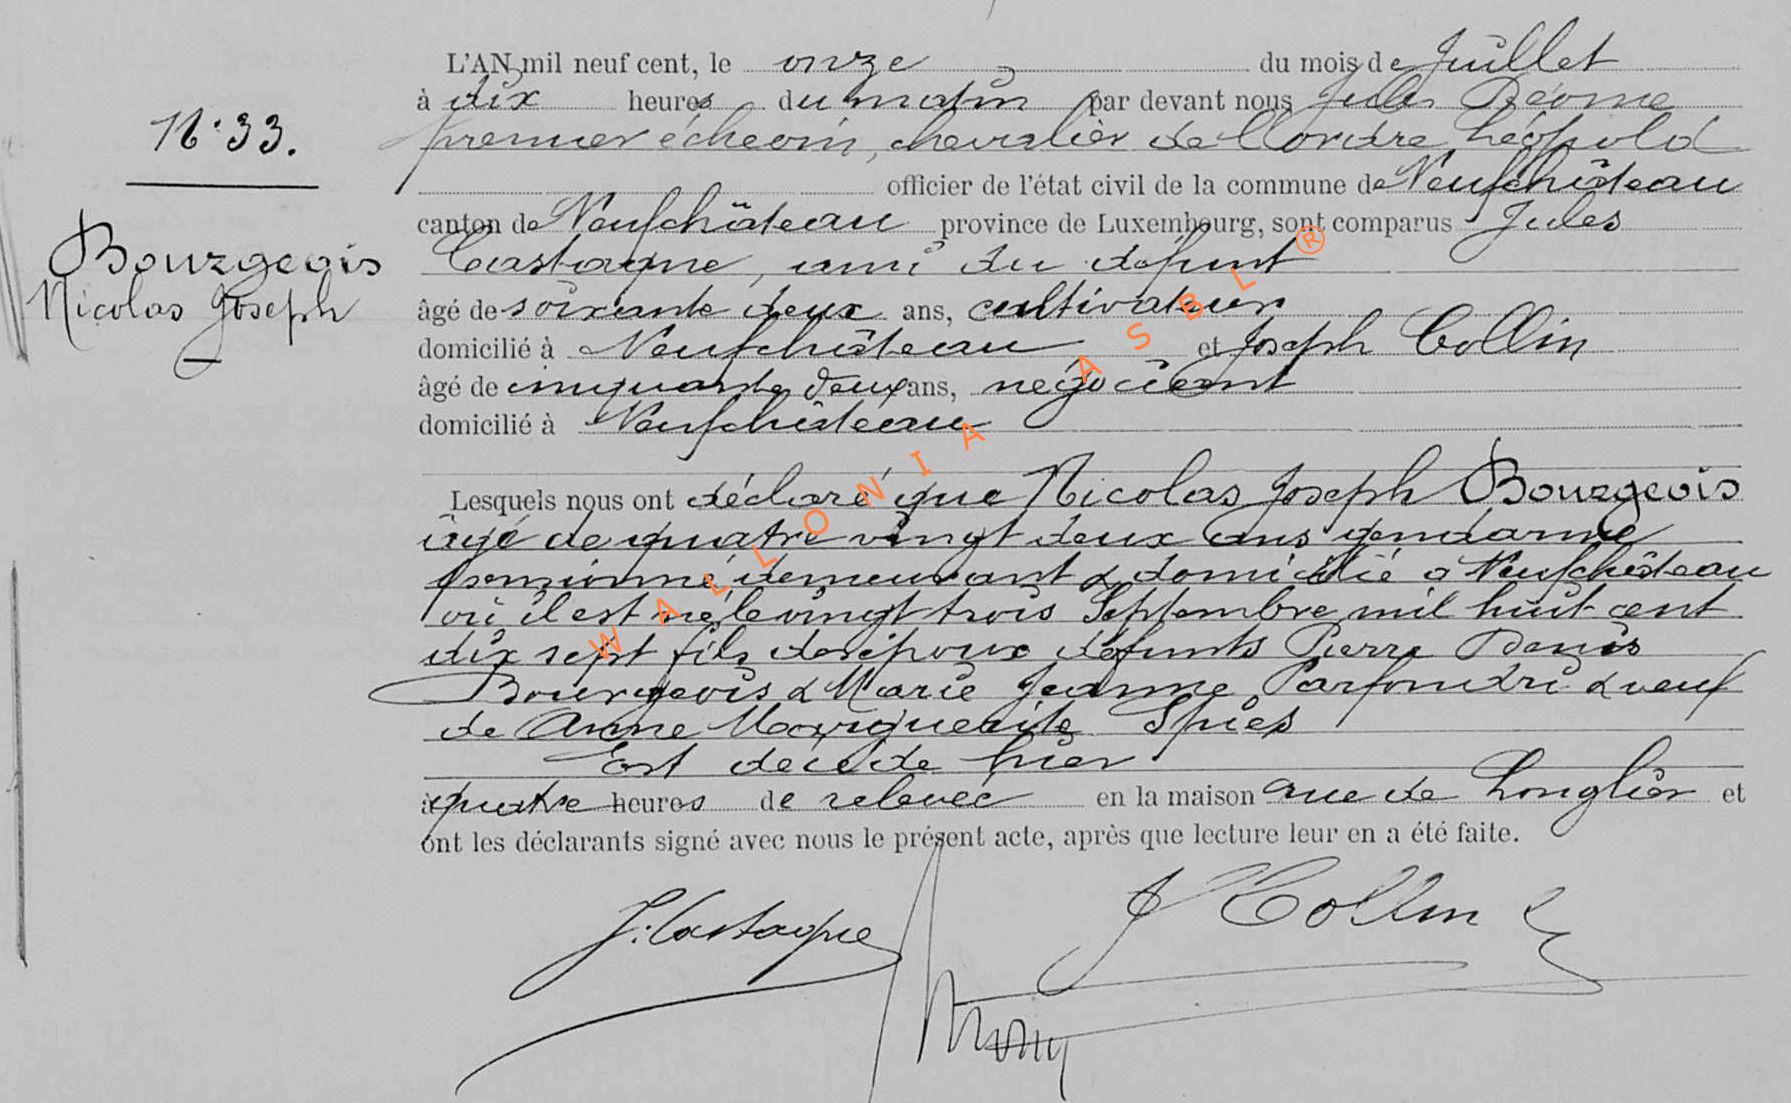 N° 33.
Bourgeois
Nicolas Joseph
L'AN mil neuf cent, le onze du mois de Juillet
à dix heures du matin par devant nous Jules
premier échevin, chevalier de l'ordre Léopold
officier de l'état civil de la commune de Neufchâteau
canton de Neufchâteau province de Luxembourg, sont comparus Jules
Castagne, ami du défunt
âgé de soixante deux ans, cultivateur
domicilié à Neufchâteau et Joseph Collin
âgé de cinquante deux ans, négociant
domicilié à Neufchâteau
Lesquels nous ont déclaré que Nicolas Joseph Bourgeois
âgé de quatre vingt deux ans gendarme
pensionné demeurant & domicilié à Neufchâteau
où il est né le vingt trois Septembre mil huit cent
dix sept fils des époux défunts Pierre Denis
Bourgeois & Marie Jeanne Parfondri & veuf
de Anne Marguerite Spies
Est décédé hier
à quatre heures de relevée en la maison rue de Longlier et
ont les déclarants signé avec nous le présent acte, après que lecture leur en a été faite.
J. Castagne
J Collin
WALLONIA ASBL ®